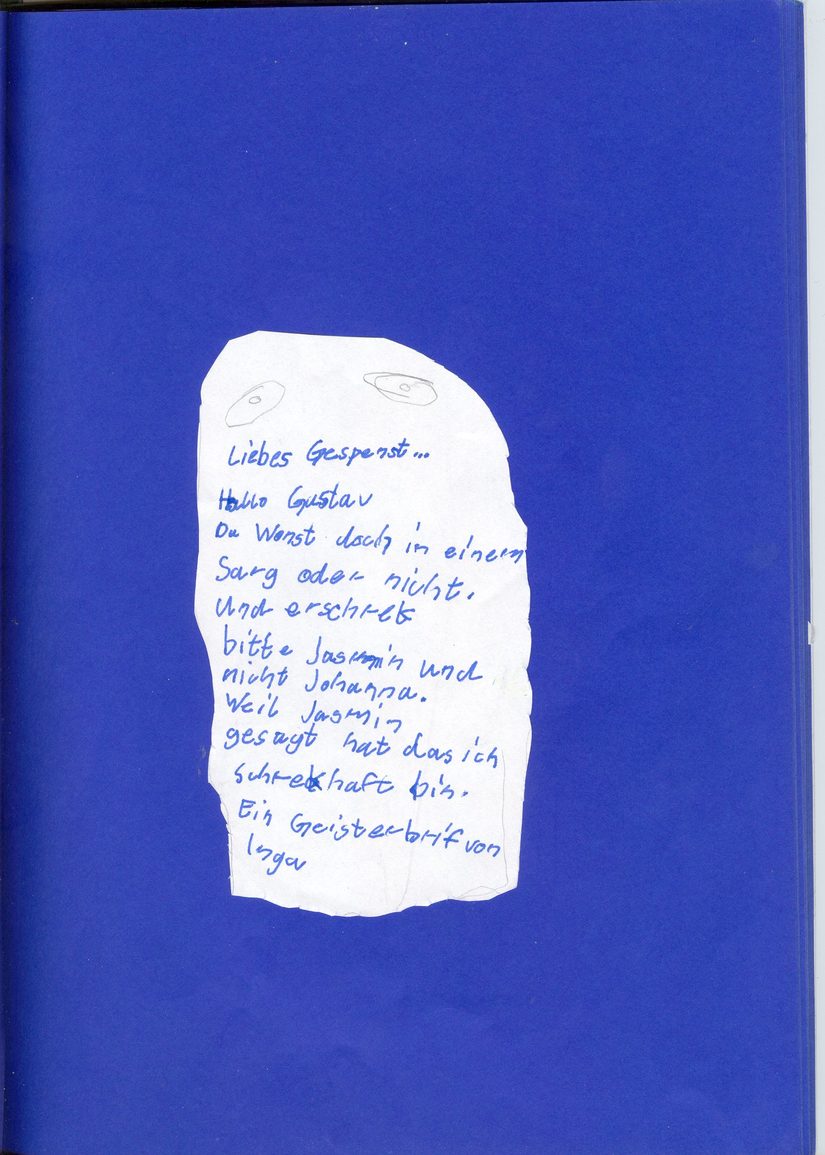 Liebes Gespenst...
Hallo Gustav
Du Wonst doch in einem
Sarg oder nicht.
Und erschrek
bitte Jasmin und
nicht Johanna.
Weil Jasmin
gesagt hat das ich
schrekhaft bin.
Ein Geisterbrif von
Inga